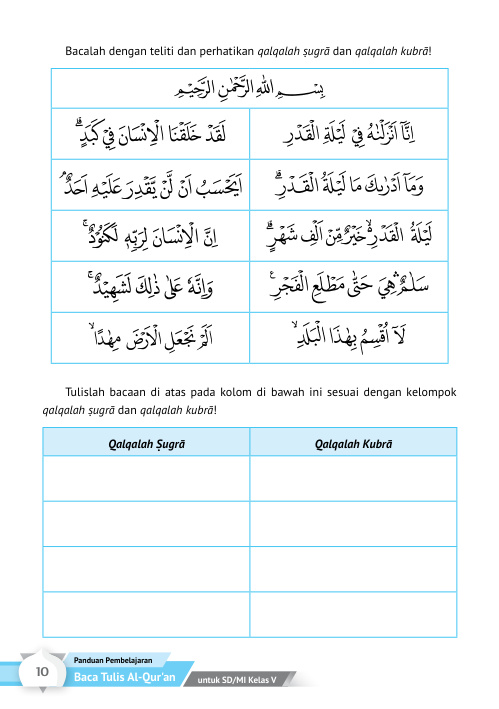 Bacalah dengan teliti dan perhatikan qalqalah ṣugrā dan qalqalah kubrā!
بِسْمِ اللّٰهِ الرَّحْمٰنِ الرَّحِيْمِ
اِنَّآ اَنْزَلْنٰهُ فِيْ لَيْلَةِ الْقَدْرِ
لَقَدْ خَلَقْنَا الْاِنْسَانَ فِيْ كَبَدٍۗ
وَمَآ اَدْرٰىكَ مَا لَيْلَةُ الْقَدْرِۗ
اَيَحْسَبُ اَنْ لَّنْ يَّقْدِرَ عَلَيْهِ اَحَدٌۘ
لَيْلَةُ الْقَدْرِ ەۙ خَيْرٌ مِّنْ اَلْفِ شَهْرٍۗ
اِنَّ الْاِنْسَانَ لِرَبِّهٖ لَكَنُوْدٌۚ
سَلٰمٌ ۛهِيَ حَتّٰى مَطْلَعِ الْفَجْرِࣖ
وَاِنَّهٗ عَلٰى ذٰلِكَ لَشَهِيْدٌۚ
لَآ اُقْسِمُ بِهٰذَا الْبَلَدِۙ
اَلَمْ نَجْعَلِ الْاَرْضَ مِهٰدًاۙ
Tulislah bacaan di atas pada kolom di bawah ini sesuai dengan kelompok
qalqalah ṣugrā dan qalqalah kubrā!
Qalqalah Ṣugrā
Qalqalah Kubrā
10
Panduan Pembelajaran
Baca Tulis Al-Qur'an
untuk SD/MI Kelas V